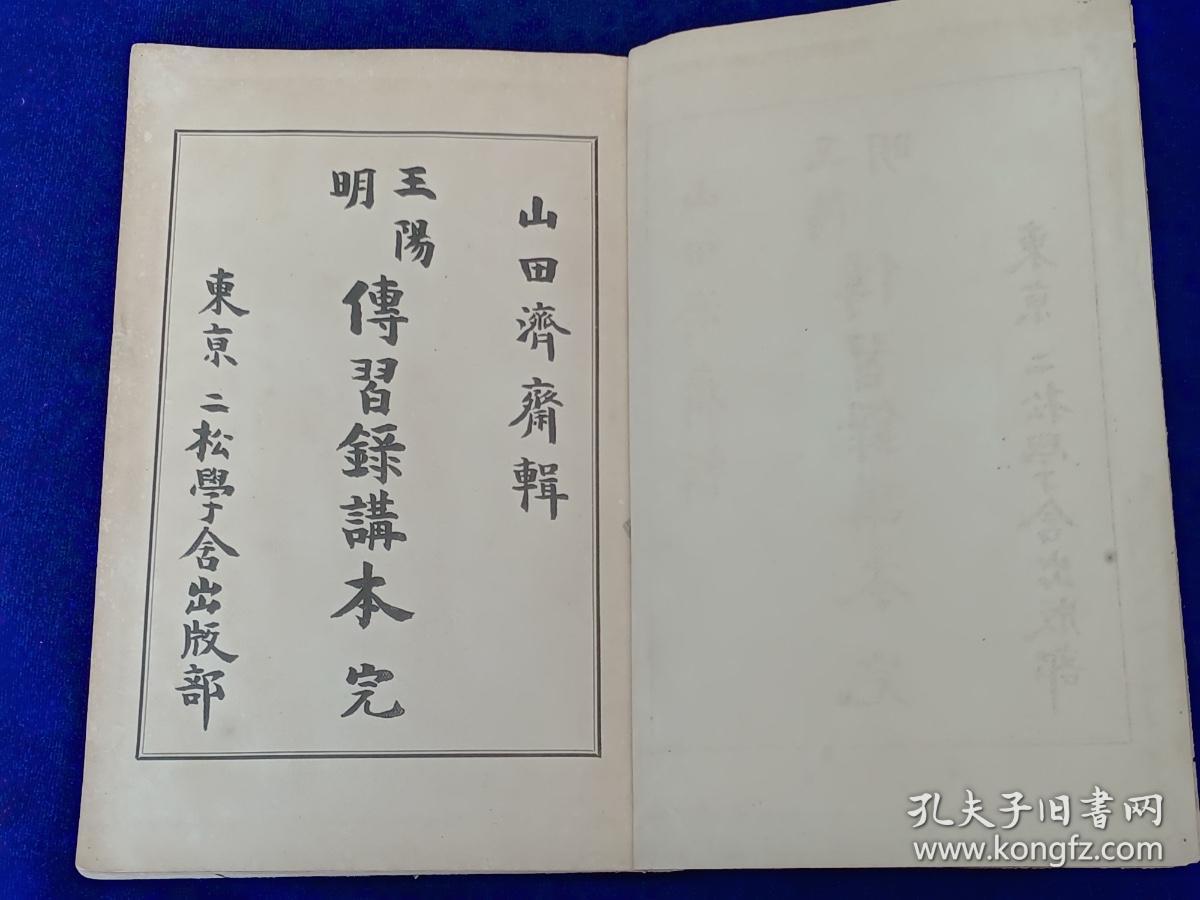 山田濟齋輯
王陽明
傳習錄講本 完
東京 二松學舍出版部
孔夫子旧书网
www.kongfz.com